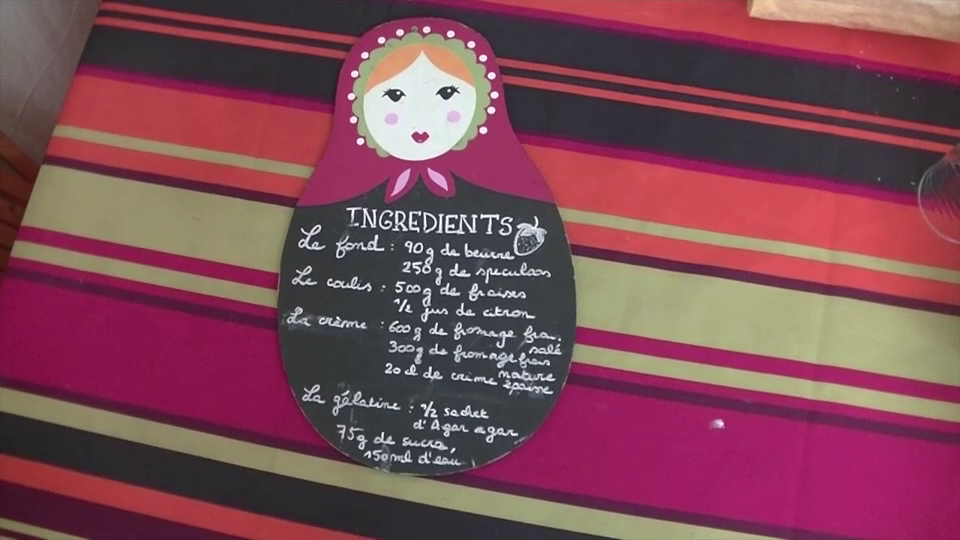 INGREDIENTS
Le fond : 90g de beurre
250g de speculoos
Le coulis : 500g de fraises
1/2 jus de citron
La crème : 600g de fromage frai.
salé
300g de fromage frais
nature
20 cl de crème épaisse
La gélatine : 1/2 sachet
d'Agar agar
75g de sucre,
150ml d'eau